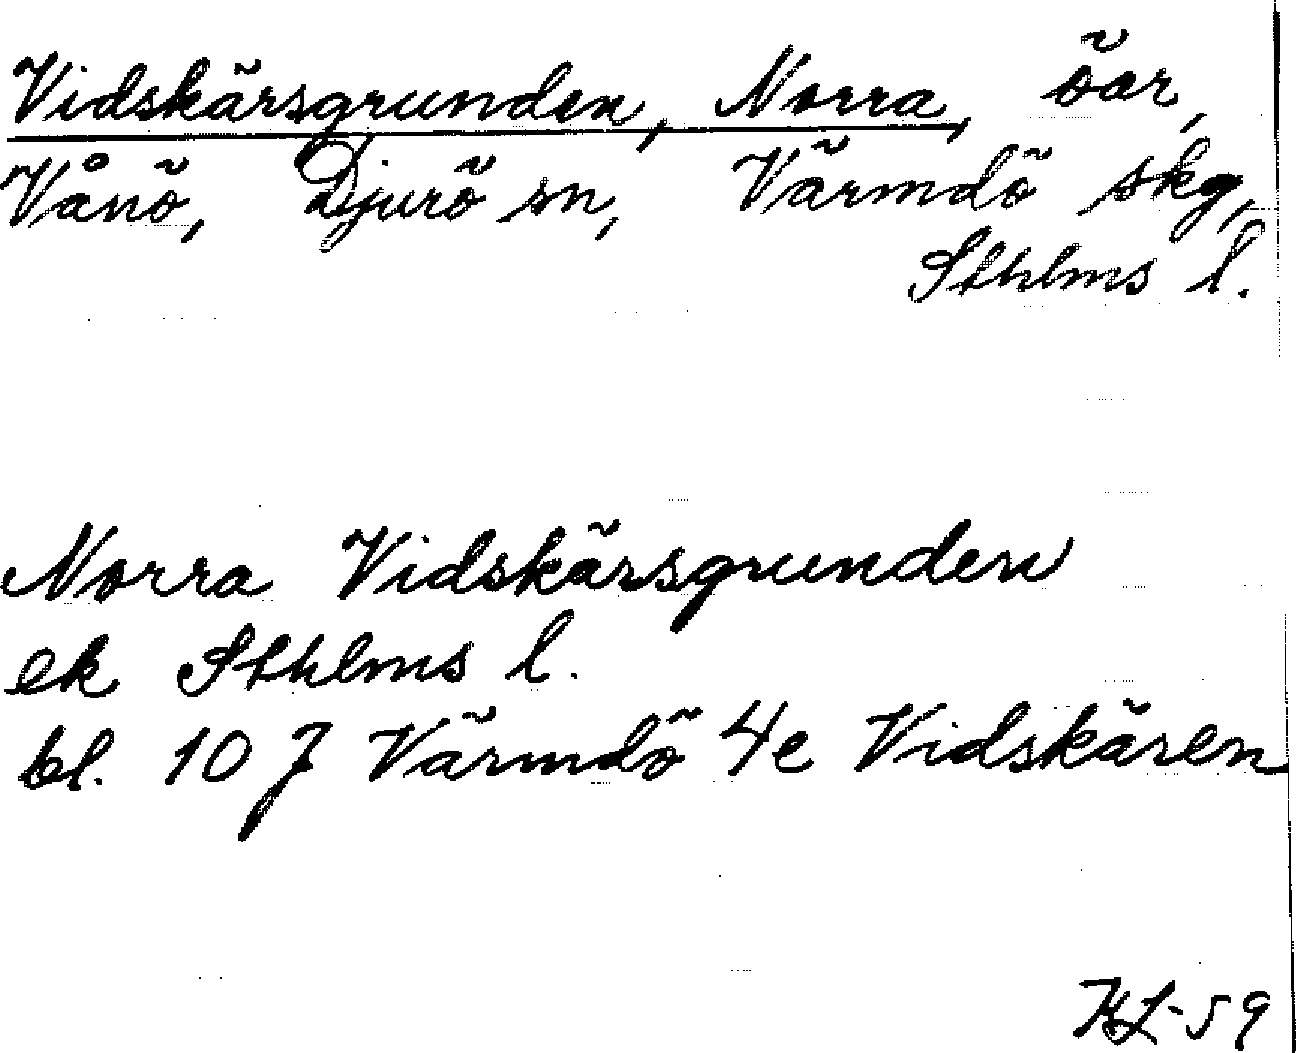 Vidskärsgrunden, Norra, öar,
Vånö, Djurö sn, Värmdö skg,
Sthlms l.
Norra Vidskärsgrunden
ek Sthlms l.
bl. 107 Värmdö 4e Vidskären
KL-59